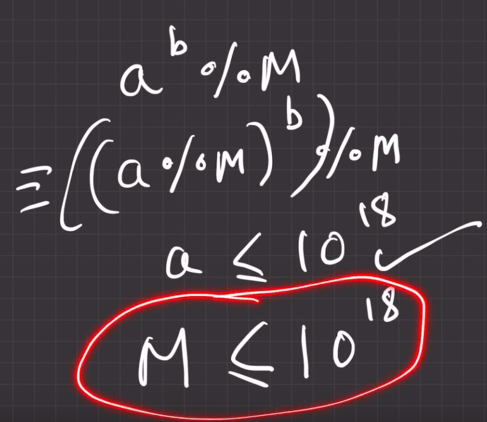 a^b % M
≡ ((a % M)^b) % M
a ≤ 10^18 ✓
M ≤ 10^18